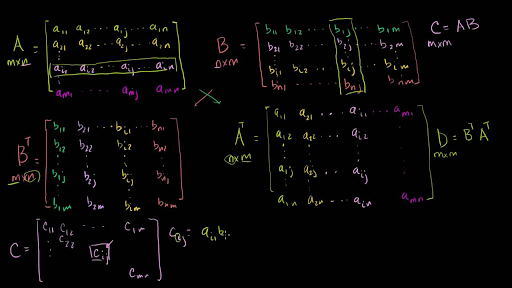 A = [ a₁₁ a₁₂ ⋯ a₁ⱼ ⋯ a₁ₙ
m×n a₂₁ a₂₂ ⋯ a₂ⱼ ⋯ a₂ₙ
⋮
aᵢ₁ aᵢ₂ ⋯ aᵢⱼ ⋯ aᵢₙ
⋮
aₘ₁ ⋯ aₘⱼ aₘₙ ]
B = [ b₁₁ b₁₂ ⋯ b₁ⱼ ⋯ b₁ₘ
n×m b₂₁ b₂₂ ⋯ b₂ⱼ ⋯ b₂ₘ
⋮
bᵢ₁ bᵢ₂ ⋯ bᵢⱼ ⋯ bᵢₘ
bₙ₁ ⋯ bₙⱼ bₙₘ ]
C = AB
m×m
Bᵀ = [ b₁₁ b₂₁ ⋯ bᵢ₁ ⋯ bₙ₁
m×n b₁₂ b₂₂ bᵢ₂ bₙ₂
⋮
b₁ⱼ b₂ⱼ bᵢⱼ bₙⱼ
⋮
b₁ₘ b₂ₘ bᵢₘ bₙₘ ]
Aᵀ = [ a₁₁ a₂₁ ⋯ aᵢ₁ ⋯ aₘ₁
n×m a₁₂ a₂₂ ⋯ aᵢ₂
⋮
a₁ⱼ a₂ⱼ ⋯ aᵢⱼ
⋮
a₁ₙ a₂ₙ ⋯ aᵢₙ aₘₙ ]
D = BᵀAᵀ
m×m
C = [ c₁₁ c₁₂ ⋯ c₁ₘ
⋮ c₂₂
cᵢⱼ
cₘₘ ]
cᵢⱼ = aᵢ₁bᵢ